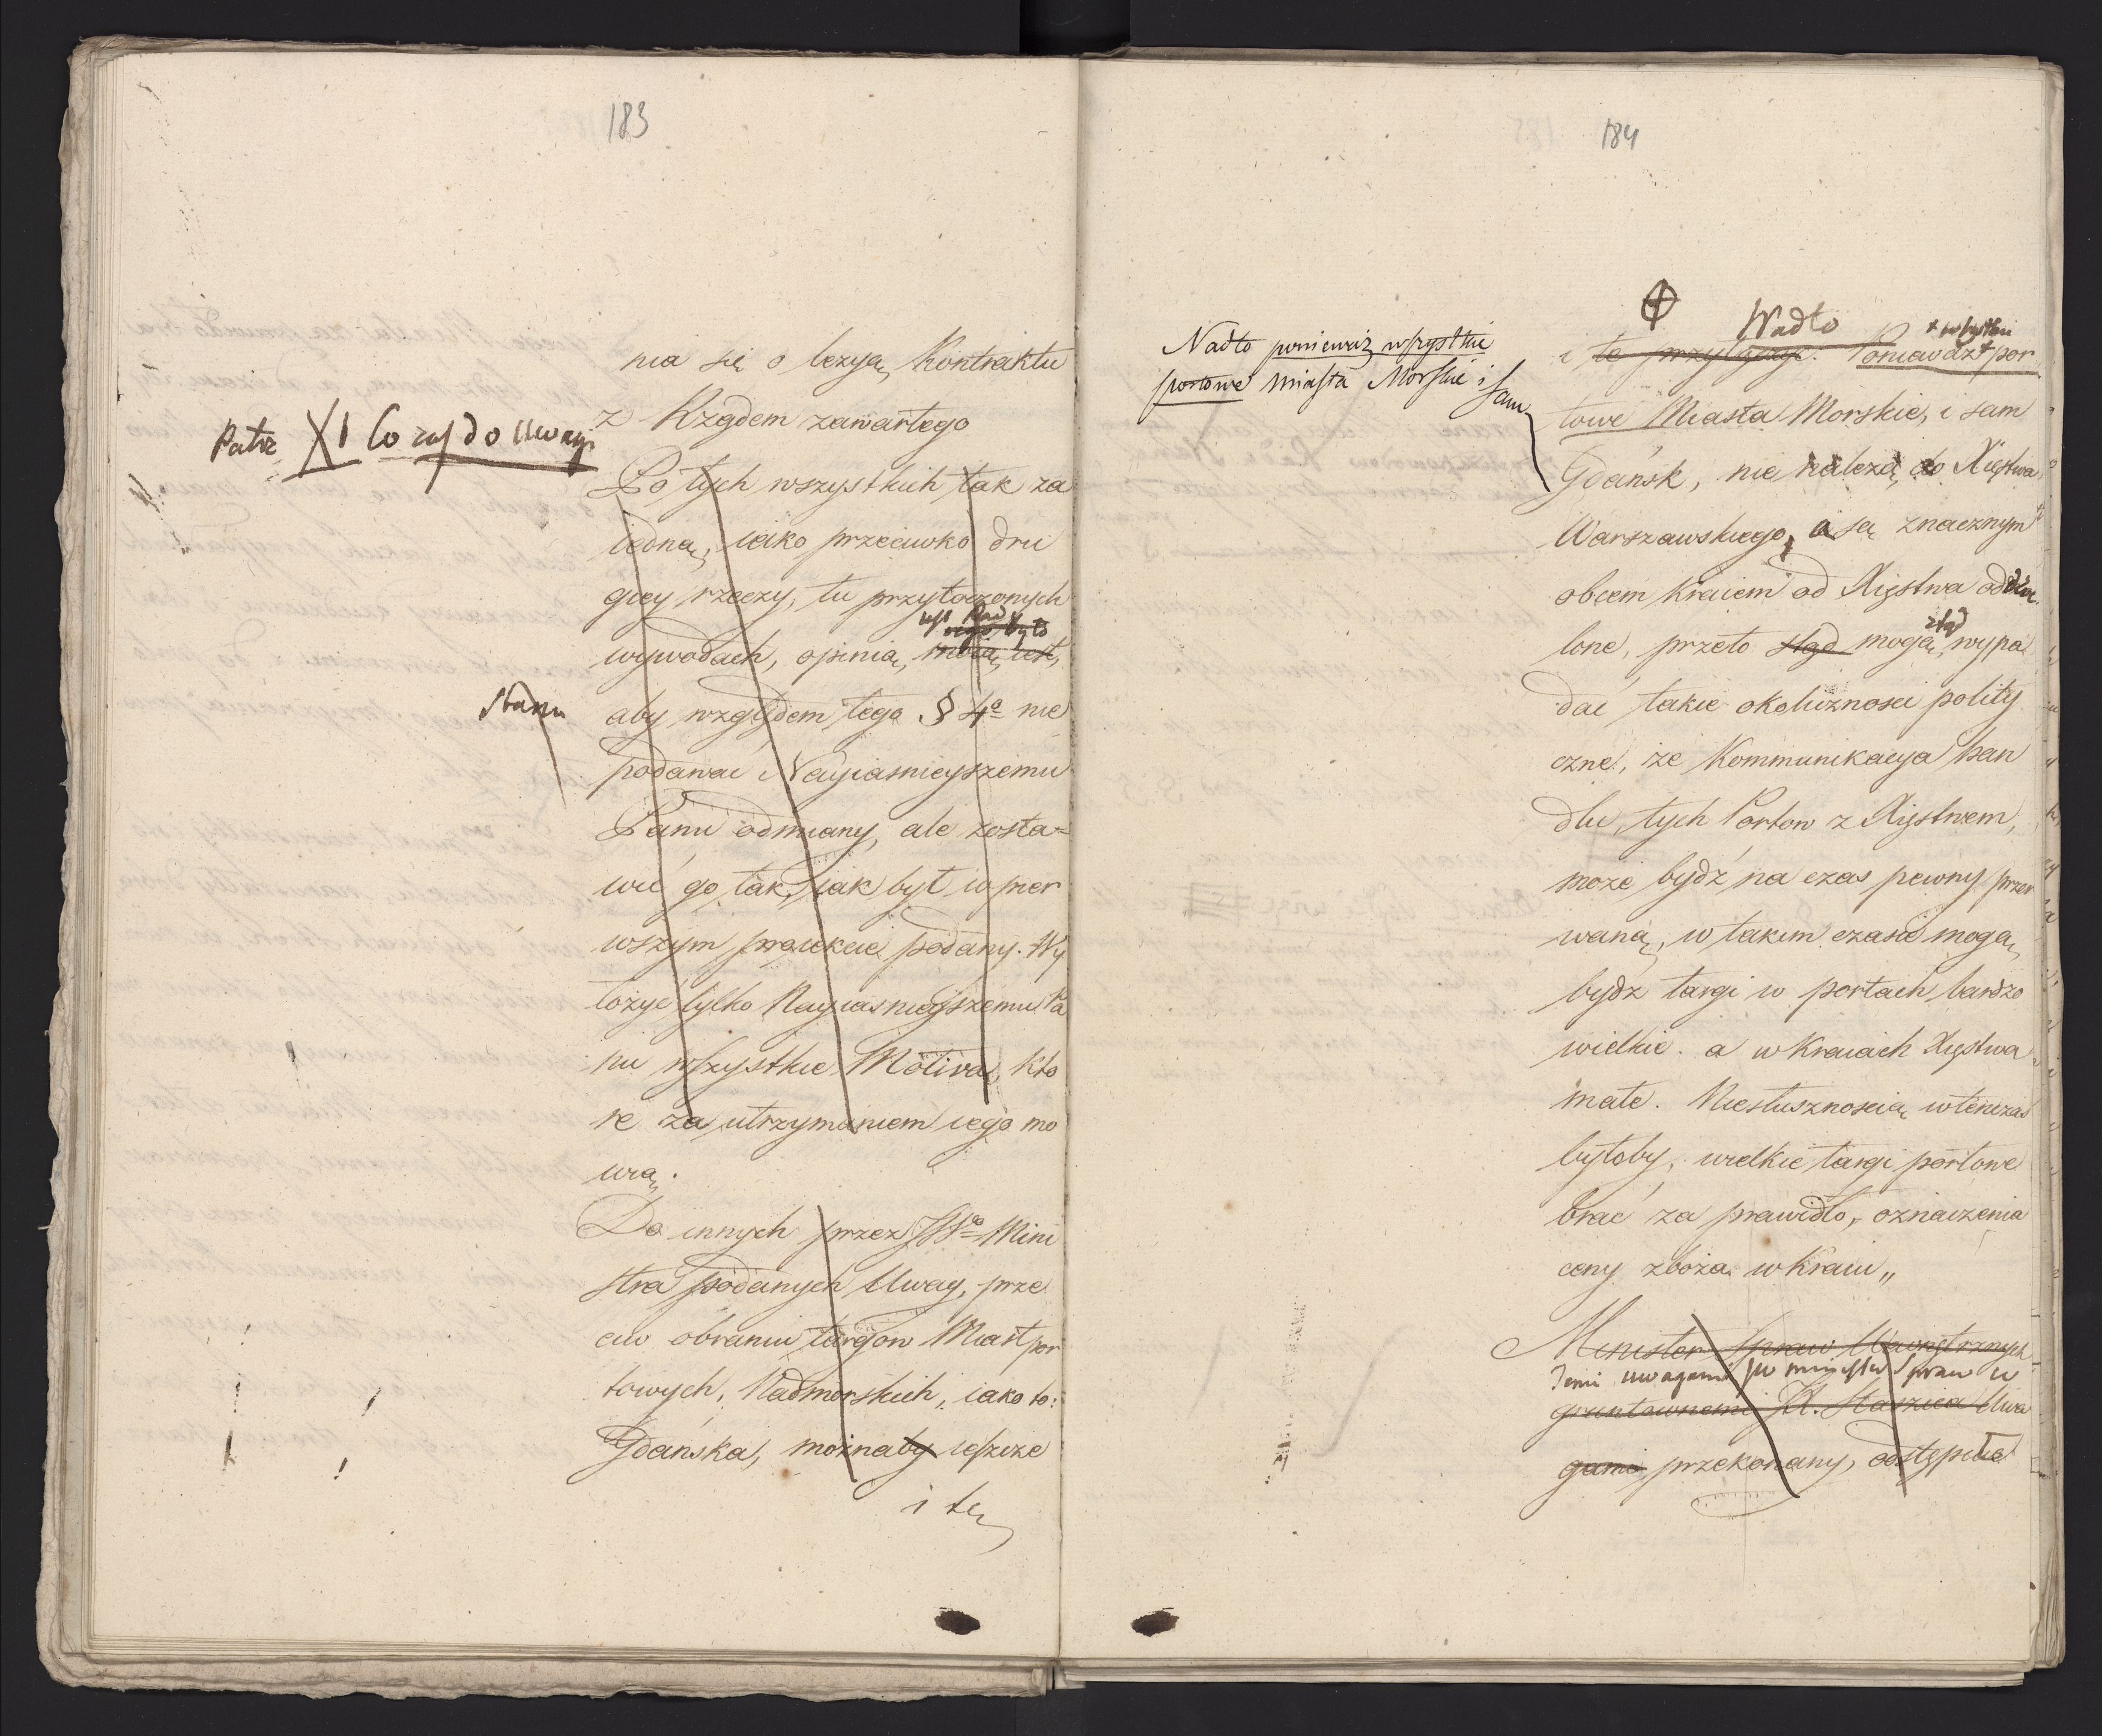 183
nia się o lezyą Kontraktu
z Rządem zawartego
Patrz XI Co zaś do Uwagi
Po tych wszystkich tak za
iedną, iako przeciwko dru
giey rzeczy, tu przytoczonych
iest Rady
wywodach, opinią, moią iest,
Stanu
aby względem tego § 4º nie
podawać Nayiasnieyszemu
Panu odmiany, ale zosta=
wić go tak, iak był w pier
wszym proiekcie podany. Wy
łożyć tylko Nayiasnieyszemu Pa
nu wszystkie Motiva, kto
re za utrzymaniem iego mo
wią.
Do innych przez JWº Mini
stra podanych Uwag, prze
ciw obraniu targow Miast por
towych, Nadmorskich, iako to:
Gdańska, możnaby ieszcze
i tę
184
Nadto ponieważ wszystkie
portowe miasta Morskie i sam
Nadto
+ wszystkie
i tę przyłączyć. Poniewdź + por
towe Miasta Morskie, i sam
Gdańsk, nie należą do Xięstwa
Warszawskiego, a są znacznym
obcem kraiem od Xięstwa oddzie
lone, przeto stąd mogą ztąd wypa
dać takie okoliczności polity
czne, że Kommunikacya han
dlu, tych Portow z Xięstwem,
może bydź na czas pewny przer
waną, w takim czasie mogą
bydź targi w portach bardzo
wielkie. a w Kraiach Xięstwa
małe. Niesłusznością wtenczas
byłoby, wielkie targi portowe
brać za prawidło, oznaczenia
ceny zboża w kraiu„
Minister Spraw Wewnętrznych
Temi uwagami JW minister Spraw W
gruntownemi JX. Staszica Uwa
gami przekonany, odstępuie